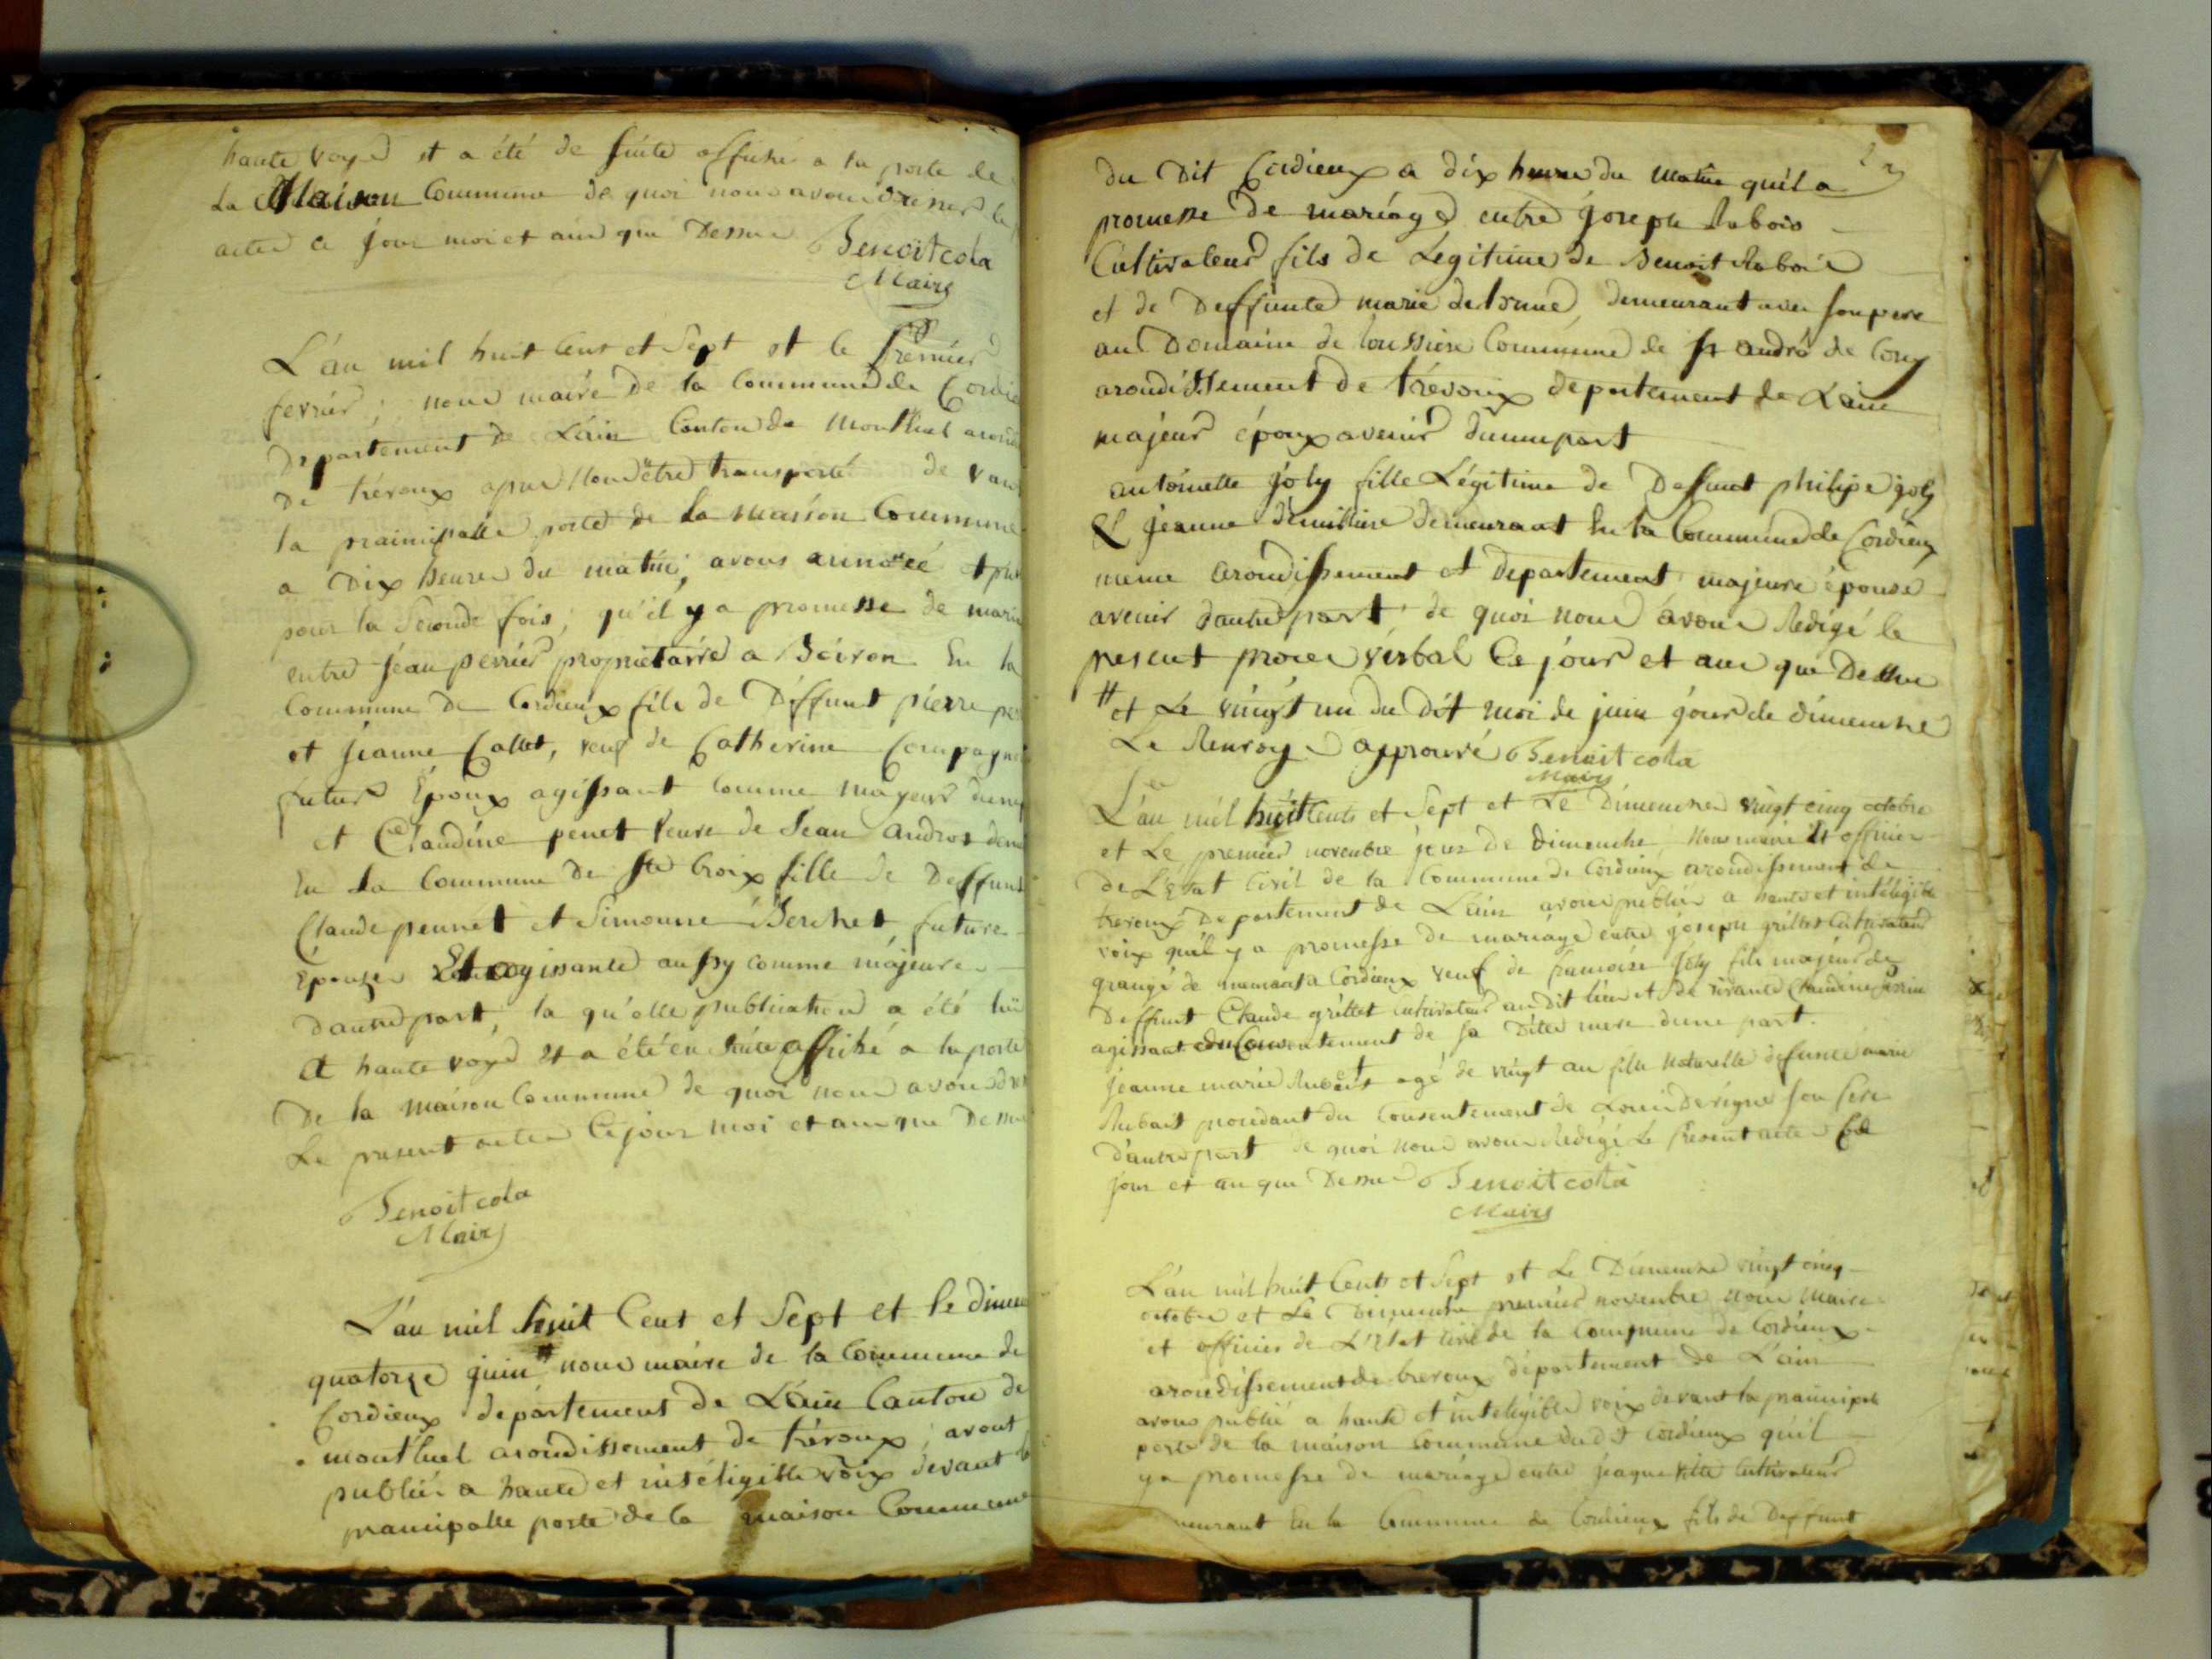 haute voye et a été de suite affiché a la porte de
La Maison Commune de quoi nous avons dressé le
actes ce jour moi et an que Dessus Benoit cola
Maire
L'an mil huit Cent et Sept et le premier
fevrier, nous maire de la Commune de Cordie
Departement de Lain Conton de Montluel arond
De trévoux apres Nous être transporté de van
la prainsipalle porte de la maison Commune
a Dix heures du matin, avons annoncé et pu
pour la Seconde fois, qu'il y a promesse de maria
entre Jean perrier propriétaire a Boiron En la
Commune De Cordieux fils de Déffunt pierre per
et Jeanne Callet, veuf de Catherine Compagn
futur Époux agissant Comme Mayeur dune
et Claudine penet veuve de Jean Andros dem
En La Commune De Ste Croix fille de Deffunt
Claude pennet et Simonne Berchet future
Épouse Et agissante aussy comme majeure
Dautre part, la qu'elle publication a été lue
A haute voye et a été en suite affiché a la porte
De la maison Commune de quoi nous avons dr
Le present actes Ce jour moi et an que Dessu
Benoit cola
Maire
L'an mil huit Cent et Sept et le dimen
quatorze juin # nous maire de la Commune de
Cordieux departement de Lain Canton de
montluel arondissement de trévoux, avont
publier a haute et intéligible voix devant l
prancipalle porte de la maison Commune
du Dit Cordieux a dix heures du matin quil a
promesse De mariage entre joseph Rabois
Cultivateur fils de Légitime de Benoit Rabois
et de Deffunte marie delorme, demeurant avec son pere
au Domaine de Coussiere Commune de st andré de Corcy
arondissement de trévoux departement de Lain
majeur époux avenir dunne part
antoinette Joly fille Légitime de Defunt philipe joly
Et Jeanne demeurant En la Commune de Cordieux
meme arondissement et departement majeure épouse
avenir dautre part, de quoi nous avons Redigé le
present proces verbal Ce jour et an que Dessus
# et Le vingt un du dit moi de juin jour de dimenche
Le Renvoye approuvé Benoit cola
Maire
L'an mil huit Cents et Sept et Le Dimenche vingt cinq octobre
et Le premier novembre jour de Dimenche, Nous maire et officier
De L'Etat Civil de la Commune de Cordieux arondissement de
trevoux Departement de Lain avons publier a haute et intéligible
voix quil y a promesse de mariage entre joseph grillet Cultivateur
grangé demeurant a Cordieux veuf de francoise joly fils majeur de
Deffunt Claude grillet cultivateur audit lieu et de vivante Claudine
agissant du Consentement de sa Dite mere dune part.
jeanne marie Rubart agé de vingt an fille Naturelle défunte marie
Rubart procedant du Consentement de Louis Derigne son pere
D'autre part de quoi nous avons Redigé Le present actes Ce
jour et an que Dessus Benoit cola
Maire
L'an mil huit Cents et Sept et Le Dimenche vingt cinq
octobre et Le Dimenche premier novembre nous Maire
et officier de L'Etat Civil de la Commune de Cordieux
arondissement de trevoux département de Lain
avons publié a haute et intéligible voix devant la prainsipale
porte de la maison commune du dit Cordieux qu'il
ya promesse de mariage entre jaque Cultivateur
meurant En la Commune de Cordieux fils de Deffunt